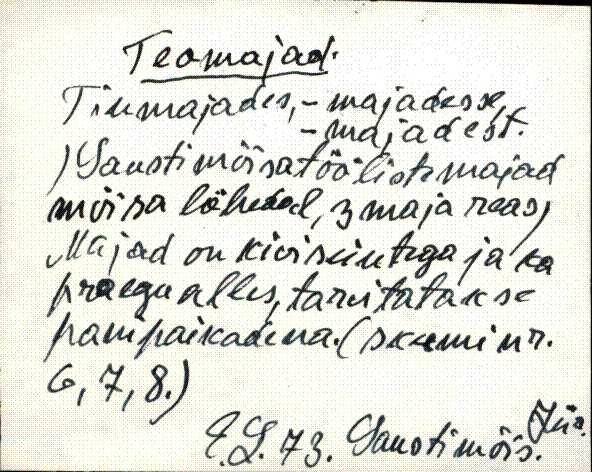 Teomajad.
Tiumajades, - majadesse,
- majadest.
) Saustimõisatööliste majad
mõisa lähedal, 3 maja reas,
Majad on kiviseintega ja ka
praegu alles, tarvitatakse
panipaikadena. (skeemi nr.
6, 7, 8.)
E.S. 73. Saustimõis. Jür.